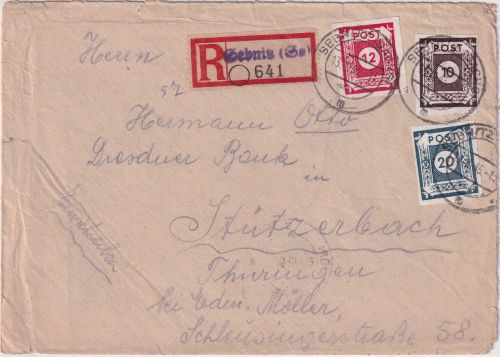 Herrn
R Sebnitz (Sa)
641
POST
12
POST
10
POST
20
Hermann Otto
Dresdner Bank
in
Stützerbach
Thüringen
bei Möller,
Schleusingerstraße 58.
Einschreiben